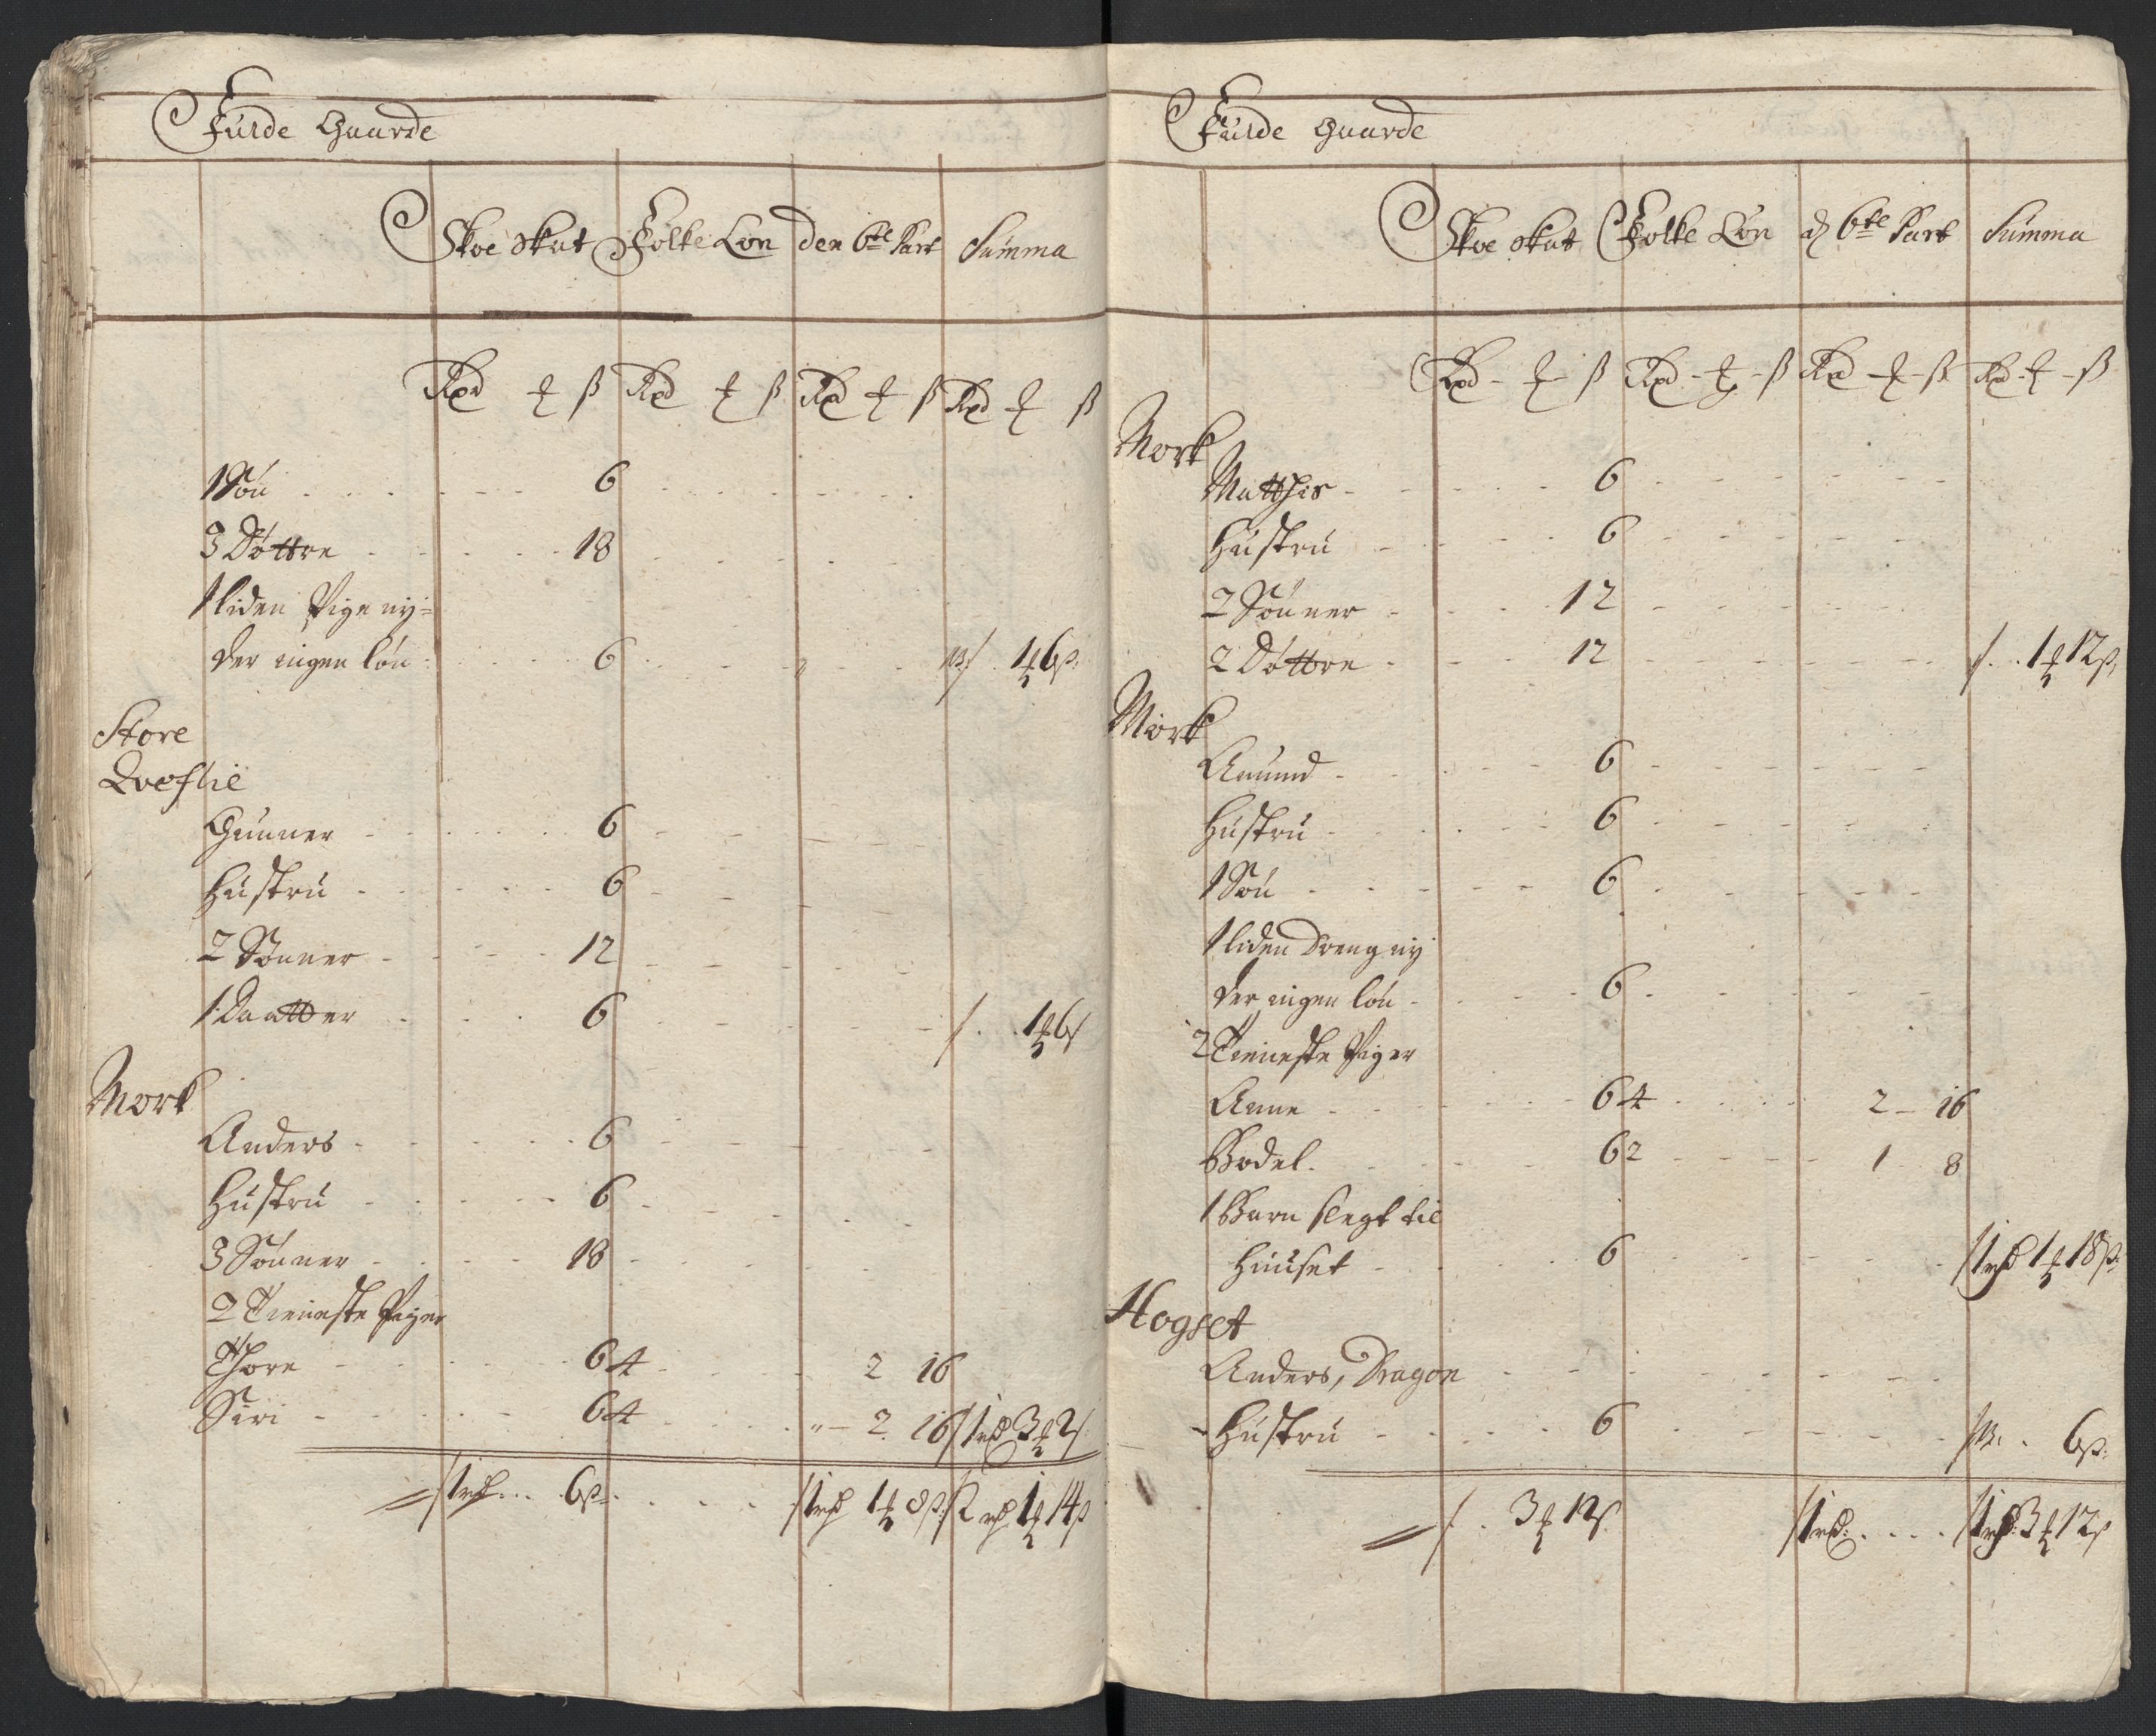 Fulde Gaarde
Skoe Skat Folke Løn den 6te Part Summa
Rdr ₰ ß Rdr ₰ ß Rdr ₰ ß Rdr ₰ ß
1 Søn 6
3 Døttre 18
1 liden Pige ny=
der ingen løn 6 1 6 ß
Store
Qveflie
Gunner 6
Hustru 6
2 Sønner 12
1 Daatter 6 1 6
Mork
Anders 6
Hustru 6
3 Sønner 18
2 Tieneste Piger
Thore 6 4 2 16
Siri 6 4 2 16 1 rd 3 2
1 rd 6 ß 1 rd 1 8 ß 2 rd 1 14 ß
Fulde Gaarde
Skoe Skat Folke Løn d 6te Part Summa
Rdr - ₰ - ß Rdr - ₰ - ß Rdr - ₰ - ß Rdr - ₰ - ß
Mork
Matthis 6
Hustru 6
2 Sønner 12
2 Døttre 12 1 12 ß
Mork
Amund 6
Hustru 6
1 Søn 6
1 liden Dreng ny
der ingen løn 6
2 Tieneste Piger
Anne 6 4 2 16
Bodel 6 2 1 8
1 Barn slegt til
Huuset 6 1 rd 1 18 ß
Hogset
Anders, Dragon
Hustru 6 6 ß
3 12 1 rd 1 rd 3 12